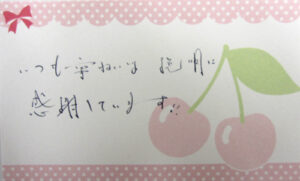 いつも丁ねいな説明に
感謝しています!!